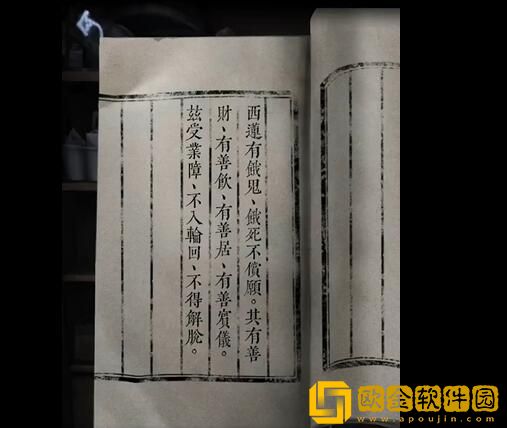 西蓮有餓鬼、餓死不償願。其有善
財、有善飲、有善居、有善賓儀。
茲受業障、不入輪回、不得解脫。
欧金软件园
www.apoujin.com